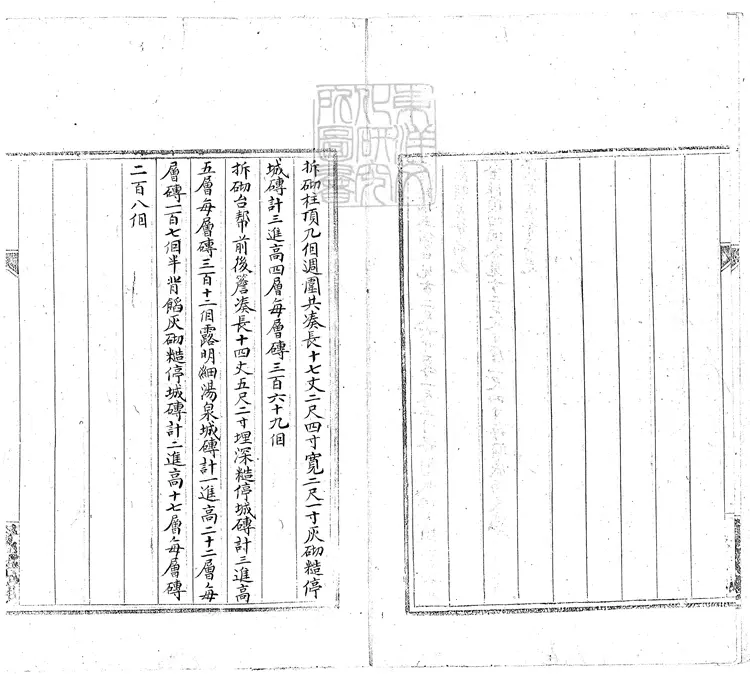 東洋文
化研究
所圖書
拆砌柱頂九個週圍共湊長十七丈二尺四寸寬二尺一寸灰砌糙停
城磚計三進高四層每層磚三百六十九個
拆砌台幫前後簷湊長十四丈五尺二寸埋深糙停城磚計三進高
五層每層磚三百十二個露明細湯泉城磚計一進高二十二層每
層磚一百七個半背餡灰砌糙停城磚計二進高十七層每層磚
二百八個